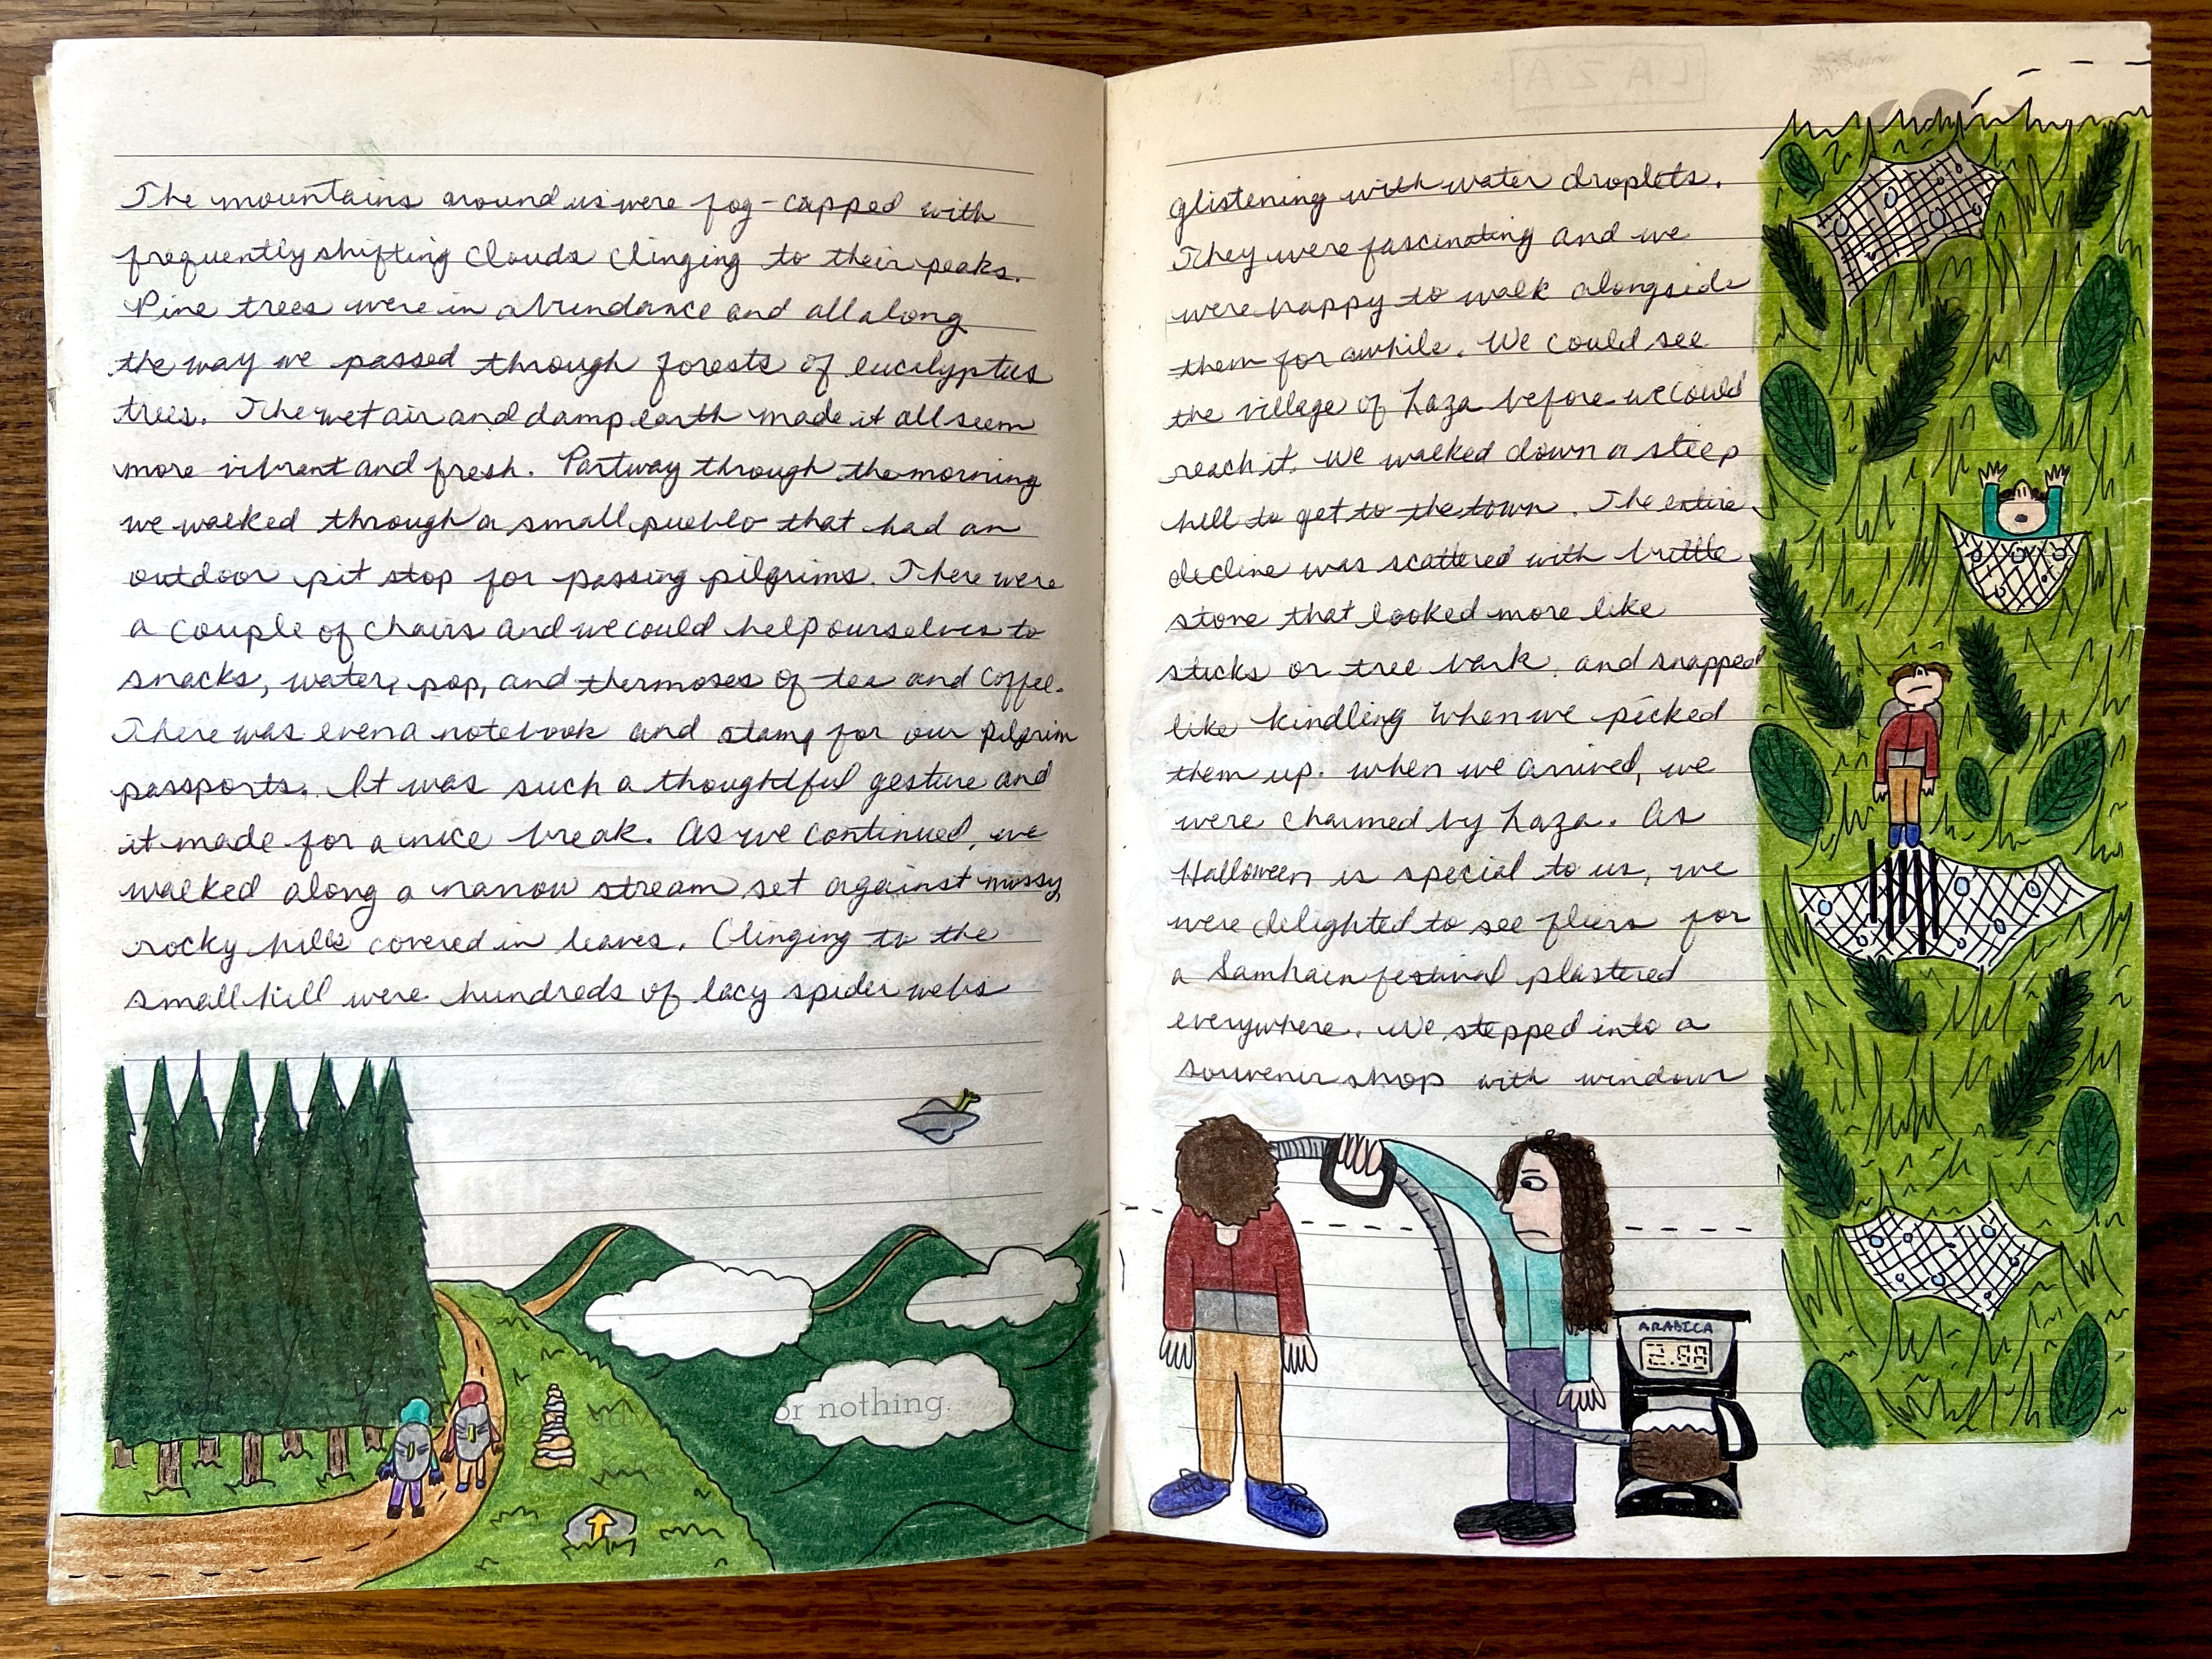 The mountains around us were fog-capped with
frequently shifting clouds clinging to their peaks.
Pine trees were in abundance and all along
the way we passed through forests of eucalyptus
trees. The wet air and damp earth made it all seem
more vibrant and fresh. Partway through the morning
we walked through a small pueblo that had an
outdoor pit stop for passing pilgrims. There were
a couple of chairs and we could help ourselves to
snacks, water, pop, and thermoses of tea and coffee.
There was even a notebook and stamp for our pilgrim
passports. It was such a thoughtful gesture and
it made for a nice break. As we continued, we
walked along a narrow stream set against mossy,
rocky hills covered in leaves. Clinging to the
small hill were hundreds of lacy spider webs
or nothing.
LAZA
glistening with water droplets.
They were fascinating and we
were happy to walk alongside
them for awhile. We could see
the village of Laza before we could
reach it. We walked down a steep
hill to get to the town. The entire
decline was scattered with brittle
stone that looked more like
sticks or tree bark and snapped
like kindling when we picked
them up. When we arrived, we
were charmed by Laza. As
Halloween is special to us, we
were delighted to see fliers for
a Samhain festival plastered
everywhere. We stepped into a
souvenir shop with window
ARABICA
2.99